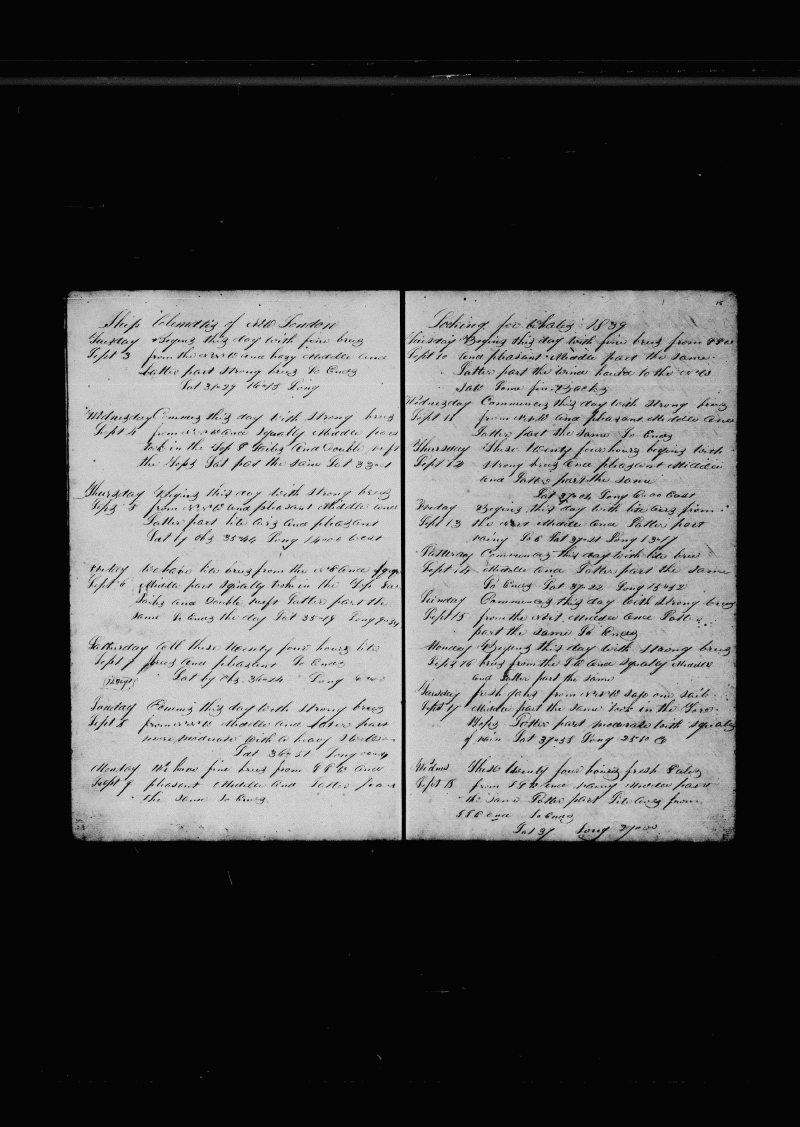 Ship Clematis of New London
Tuesday Begins this day with fine breis
Sept 3 from the NNW and hazy Middle and
Latter part strong breis So Ends
Lat 31-29 16-15 Long
Wednesday Commens this day with strong breis
Sept 4 from and squally Middle part
took in the Top G Sailes and Double reeft
the Tops Lat part the same Lat 33
Thursday Begins this day with strong breis
Sept 5 from NNW and pleasant Middle and
Latter part lite airs and pleasant
Lat by obs 35-44 Long 14-00 West
Friday We have lite breis from the and
Sept 6 Middle part squally took in the Top Ga
Sailes and Double reeft Latter part the
same So Ends the day Lat 35-18 Long
Satturday all these twenty four hours lite
Sept 7 breis and pleasant So Ends
Lat by obs 36-14 Long
Sunday Comms this day with strong breis
Sept 8 from NNW Middle and later part
more moderate with a heavy Swell on
Lat 36-51 Long
Monday We have fine breis from and
Sept 9 pleasant Middle and Latter part
the same So Ends
15
Looking for Whales 1839
Tuesday Begins this day with fine breis from
Sept 10 and pleasant Middle part the same
Latter part the wind hauld to the
Wednesday Commences this day with strong breis
Sept 11 from and pleasant Middle and
Latter part the same So Ends
Thursday These twenty four hours begins with
Sept 12 strong breis and pleasant Middle
and Latter part the same
Lat 37-04 Long 6-00 East
Friday Begins this day with lite airs from
Sept 13 the West Middle and Latter part
rainy So E Lat 37-21 Long 13-17
Satturday Commences this day with lite bree
Sept 14 Middle and Latter part the same
So Ends Lat 37-22 Long 15-52
Sunday Commences this day with strong breis
Sept 15 from the West Middle and Latter
part the same So Ends
Monday Begins this day with strong breis
Sept 16 breis from the and squally Middle
and Latter part the same
Tuesday fresh gales from saw one sail
Sept 17 Middle part the same took in the Fore
Latter part moderate with squalls
of rain Lat 37-35 Long 25-10 E
Widnes These twenty four hours fresh Gales
Sept 18 from and rainy Middle part
the same Latter part Lite airs from
SSE and So Ends
Lat 37 Long 27-00